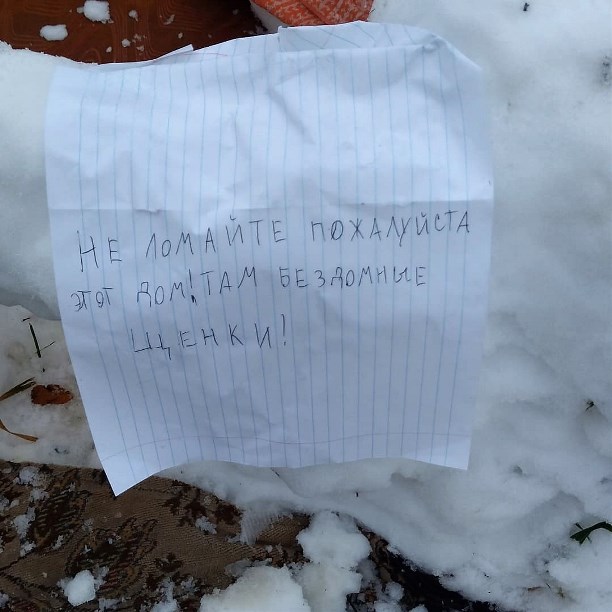 НЕ ЛОМАЙТЕ ПОЖАЛУЙСТА
ЭТОТ ДОМ! ТАМ БЕЗДОМНЫЕ
ЩЕНКИ!